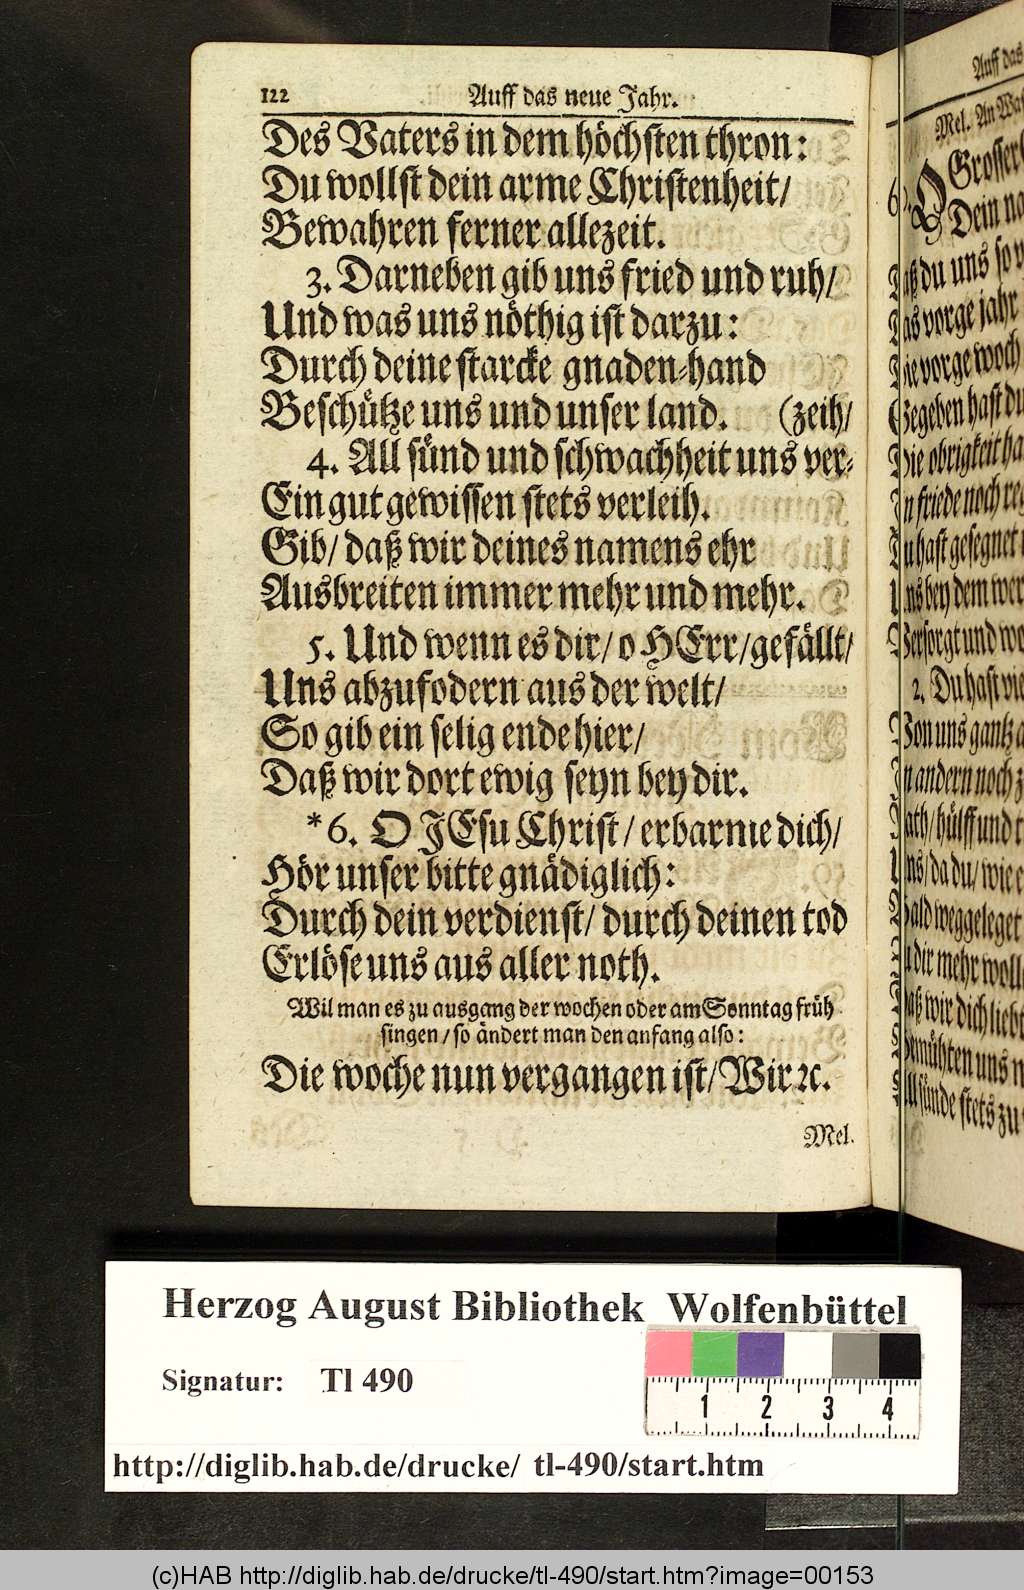 122 Auff das neue Jahr.
Des Vaters in dem höchsten thron:
Du wollst dein arme Christenheit/
Bewahren ferner allezeit.
3. Darneben gib uns fried und ruh/
Und was uns nöthig ist darzu:
Durch deine starcke gnaden-hand
Beschütze uns und unser land. (zeih/
4. All sünd und schwachheit uns ver-
Ein gut gewissen stets verleih.
Gib/ daß wir deines namens ehr
Ausbreiten immer mehr und mehr.
5. Und wenn es dir/ o HErr/ gefällt/
Uns abzufodern aus der welt/
So gib ein selig ende hier/
Daß wir dort ewig seyn bey dir.
*6. O JEsu Christ/ erbarme dich/
Hör unser bitte gnädiglich:
Durch dein verdienst/ durch deinen tod
Erlöse uns aus aller noth.
Wil man es zu ausgang der wochen oder am Sonntag früh
singen/ so ändert man den anfang also:
Die woche nun vergangen ist/ Wir ꝛc.
Mel.
Auff das
Mel. An Was
Grosser
Dein na
du uns so v
vorge jahr
vorge woch
Gegeben hast du
Die obrigkeit ha
friede noch re
hast gesegnet
bey dem wer
Versorgt und wo
2. Du hast vie
Von uns gantz a
andern noch z
hülff und t
da du/ wie e
weggeleget
dir mehr woll
wir dich liebt
uns n
sünde stets zu
Herzog August Bibliothek Wolfenbüttel
Signatur: Tl 490
1 2 3 4
http://diglib.hab.de/drucke/ tl-490/start.htm
(c)HAB http://diglib.hab.de/drucke/tl-490/start.htm?image=00153